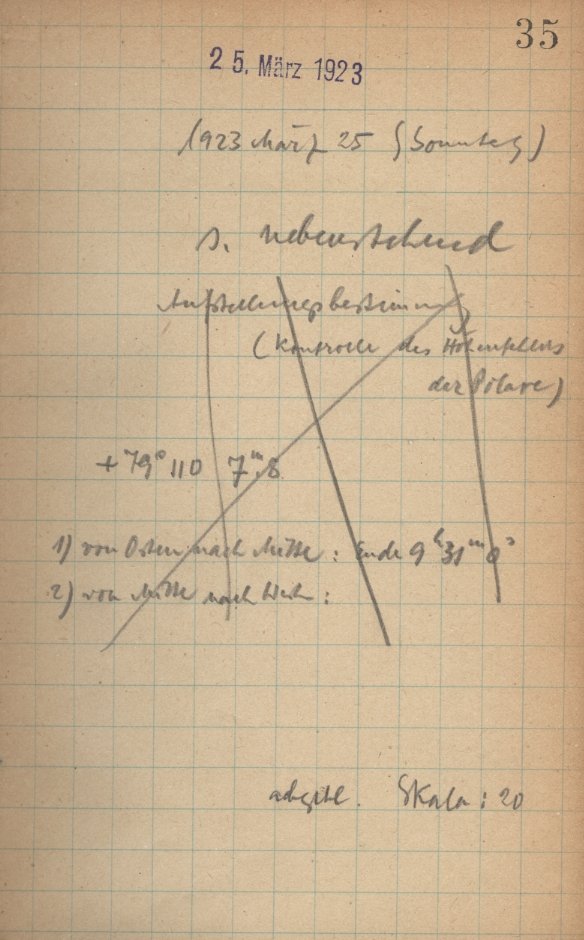 35
25. März 1923
1923 März 25 (Sonntag)
s. nebenstehend
Aufstellungsbestimmung
(Kontrolle des Höhenfehlers
der Polare)
+79° 110 7ᵐ.8
1) von Osten nach Mitte: Ende 9ʰ 31ᵐ 0ˢ
2) von Mitte nach West:
Skala: 20